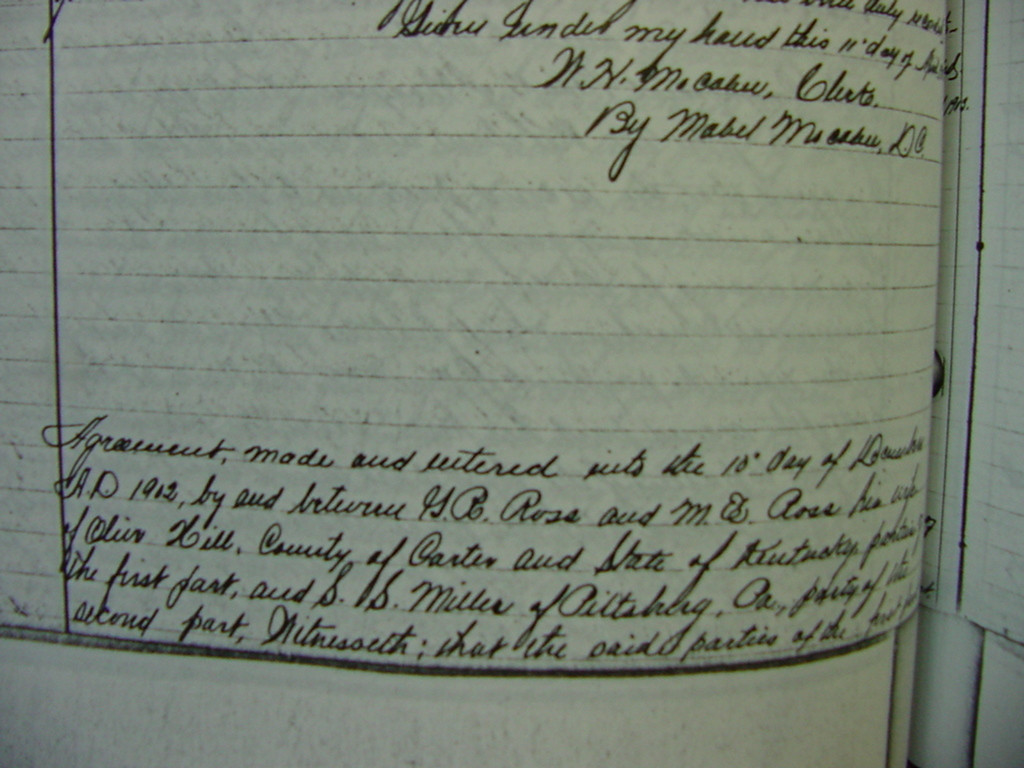 duly record-
Given under my hand this 11" day of
W. H. McCabe, Clerk.
1903.
By Mabel McCabe, D.C.
Agreement, made and entered into the 10" day of December
A.D 1902, by and between G.R. Ross and M.E. Ross his wife
of Olive Hill, County of Carter and State of Kentucky, parties of
the first part, and S. S. Miller of Pittsberg, Pa, party of the
second part, Witnesseth; that the said parties of the first part